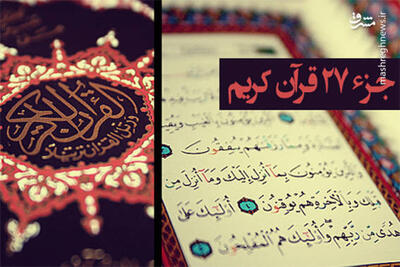 مشرق
mashreghnews.ir
جزء ۲۷ قرآن کریم
القرآن الكريم
ورتل القرآن ترتيلا
وَمِمَّا رَزَقْنَاهُمْ يُنفِقُونَ
يُؤْمِنُونَ بِمَا أُنزِلَ إِلَيْكَ وَمَا أُنزِلَ مِن
قَبْلِكَ وَبِالْآخِرَةِ هُمْ يُوقِنُونَ ٤ أُولَٰئِكَ عَلَىٰ
هُدًى مِن رَّبِّهِمْ وَأُولَٰئِكَ هُمُ الْمُفْلِحُونَ ٥